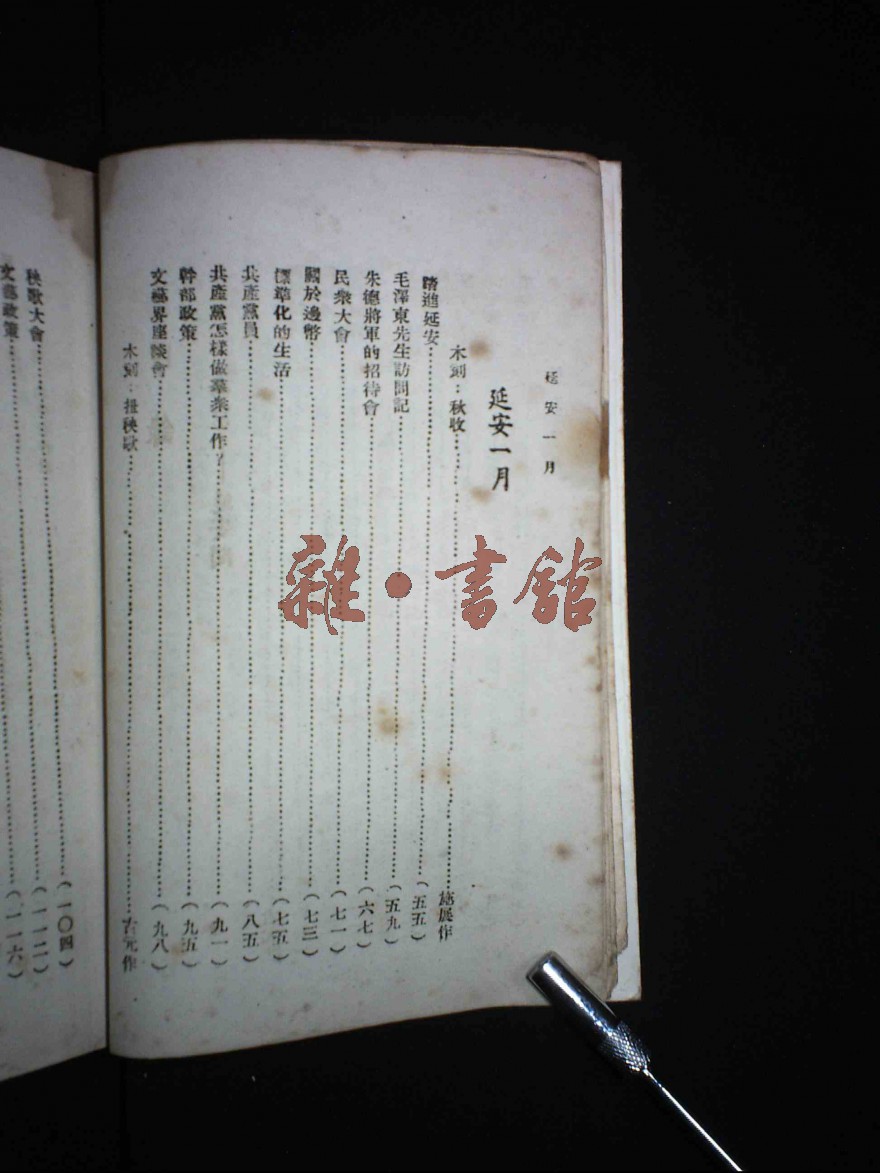 延安一月
延安一月
木刻：秋收……施展作
踏進延安……（五五）
毛澤東先生訪問記……（五九）
朱德將軍的招待會……（六七）
民衆大會……（七一）
關於邊幣……（七三）
標準化的生活……（七五）
共產黨員……（八五）
共產黨怎樣做羣衆工作？……（九一）
幹部政策……（九五）
文藝界座談會……（九八）
木刻：扭秧歌……古元作
……（一〇四）
秧歌大會……（一一二）
文藝政策……（一一六）
雜·書館